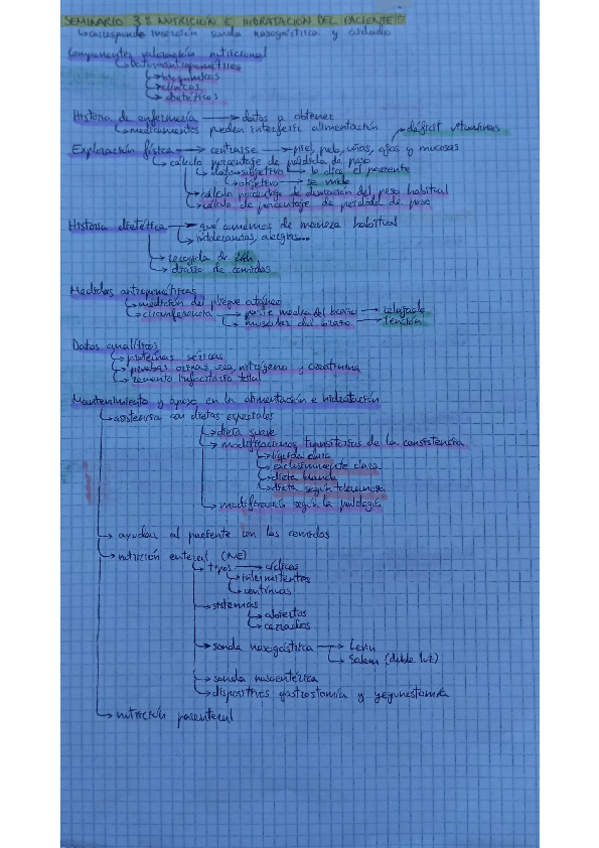 SEMINARIO 3: NUTRICIÓN E HIDRATACIÓN DEL PACIENTE
↳ corresponde inserción sonda nasogástrica y cuidado
Componentes valoración nutricional
↳ Datos antropométricos
↳ bioquímicos
↳ clínicos
↳ dietéticos
Historia de enfermería → datos a obtener
↳ medicamentos pueden interferir alimentación → déficit vitaminas
Exploración física → centrarse → piel, pelo, uñas, ojos y mucosas
↳ calcula porcentaje de pérdida de peso
↳ dato subjetivo → lo dice el paciente
↳ objetivo → se mide
↳ cálculo porcentaje de disminución del peso habitual
↳ cálculo de porcentaje de pérdida de peso
Historia dietética → qué comemos de manera habitual
↳ intolerancias, alergias...
↳ recogida de 24h
↳ diario de comidas
Medidas antropométricas
↳ medición del pliegue cutáneo
↳ circunferencia → parte media del brazo → relajado
↳ muscular del brazo → tensión
Datos analíticos
↳ proteínas séricas
↳ pruebas orina: urea, nitrógeno y creatinina
↳ recuento linfocitario total
Mantenimiento y apoyo en la alimentación e hidratación
↳ asistencia con dietas especiales
↳ dieta suave
↳ modificaciones transitorias de la consistencia
↳ líquida clara
↳ exclusivamente clara
↳ dieta blanda
↳ dieta según tolerancia
↳ modificación según la patología
↳ ayudar al paciente con las comidas
↳ nutrición enteral (NE)
↳ tipos → cíclicas
↳ intermitentes
↳ continuas
↳ sistemas
↳ abiertos
↳ cerrados
↳ sonda nasogástrica → Levin
↳ Salem (doble luz)
↳ sonda nasoentérica
↳ dispositivos gastrostomía y yeyunostomía
↳ nutrición parenteral